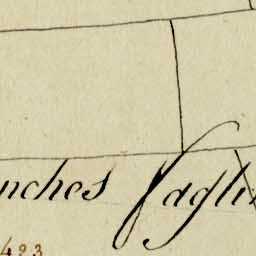 nches Jagli
423